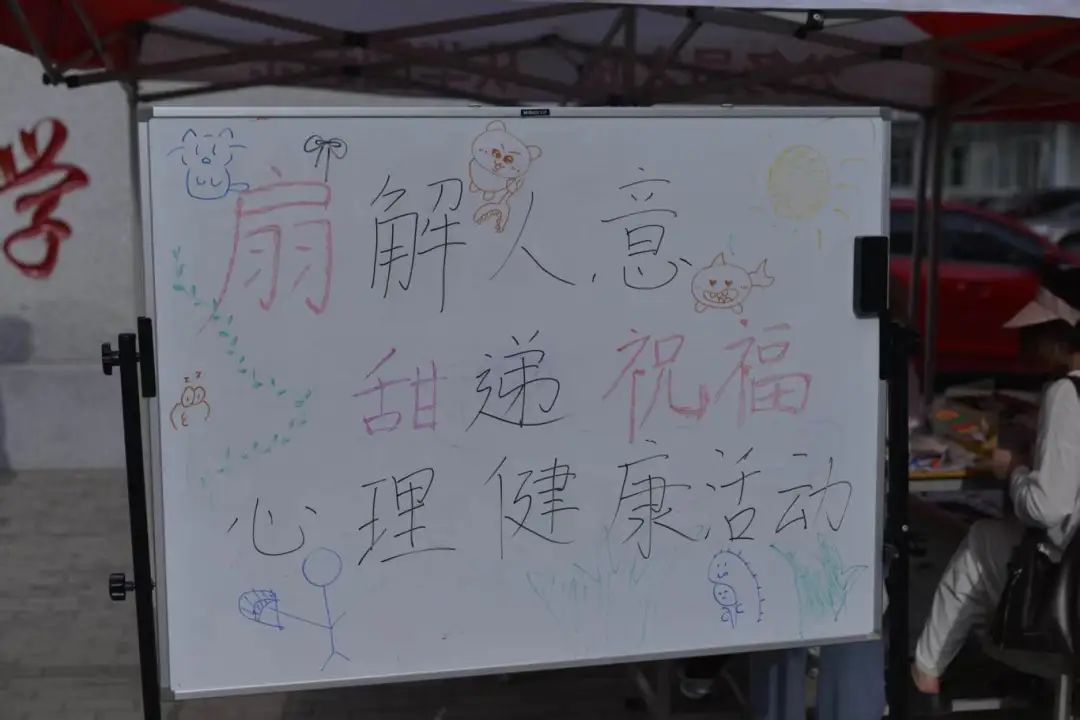 学
扇解人意
甜递祝福
心理健康活动